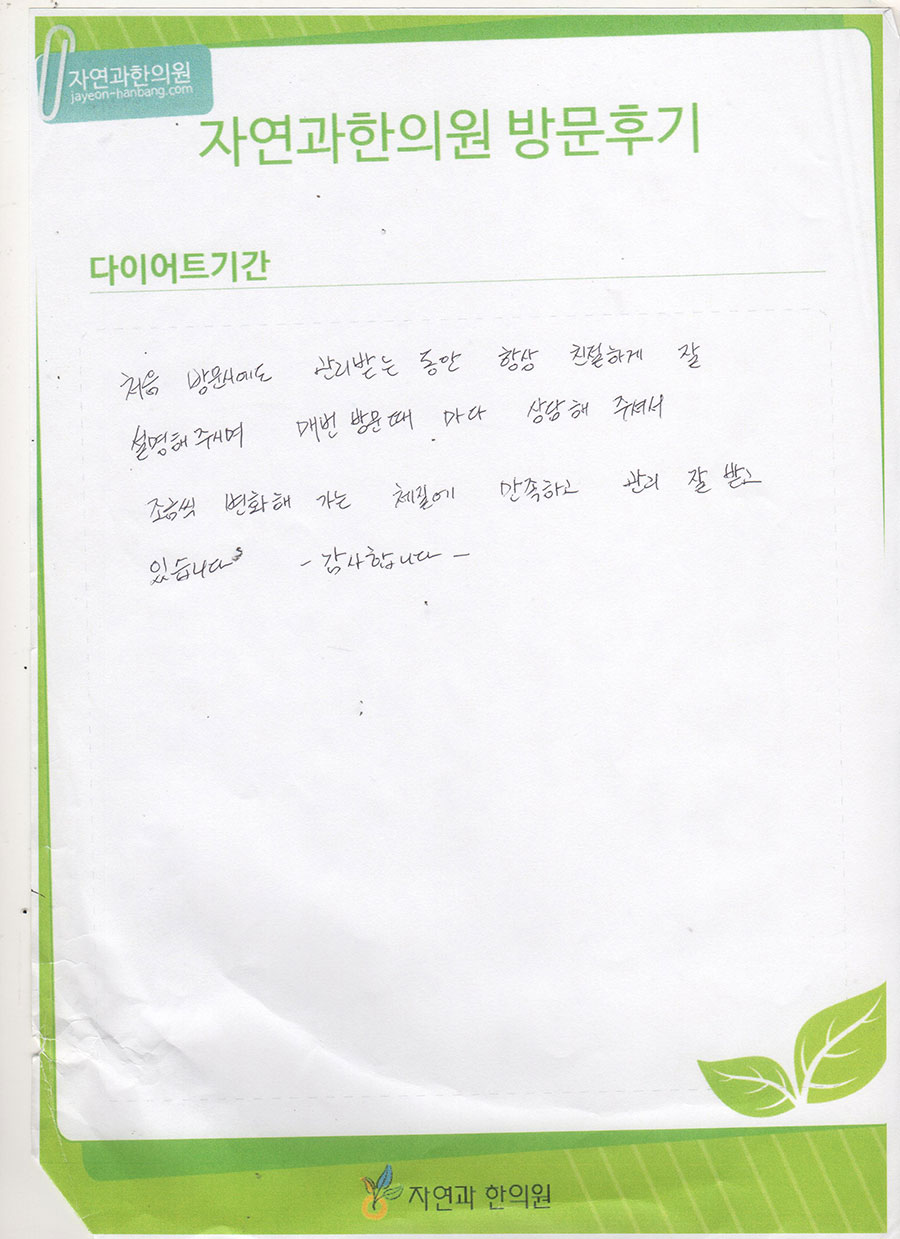 자연과한의원
jayeon-hanbang.com
자연과한의원 방문후기
다이어트기간
처음 방문시에도 관리받는 동안 항상 친절하게 잘
설명해 주시며 매번 방문때 마다 상담해 주셔서
조금씩 변화해 가는 체질에 만족하고 관리 잘 받고
있습니다
- 감사합니다 -
자연과 한의원